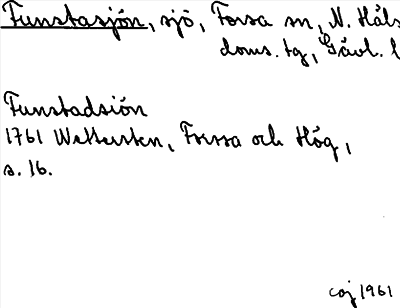 Funstasjön, sjö, Forsa sn, N. Häls
doms. tg, Gävl. l
Funstadsiön
1761 Wettersten, Forssa och Hög,
s. 16.
coj 1961